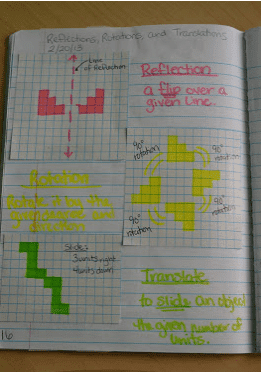 Reflections, Rotations, and Translations
2/20/13
Line
of Reflection
Reflection
a flip over a
given line.
90°
rotation
90°
rotation
90°
rotation
90°
rotation
Rotation
Rotate it by the
given degree and
direction
Slides
3 units right
4 units down
Translate
to slide an object
the given number of
units.
16